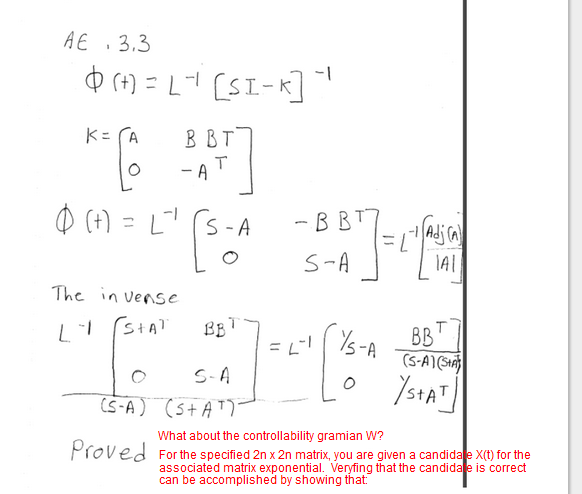 AE . 3.3
Φ(t) = L⁻¹ [SI-K]⁻¹
K = [A BBT
0 -AT]
Φ(t) = L⁻¹ [S-A -BBT
0 S-A] = L⁻¹ [Adj(A) / |A|]
The inverse
L⁻¹ [S+AT BBT
0 S-A] / (S-A) (S+AT) = L⁻¹ [1/S-A BBT/(S-A)(S+A)
0 1/S+AT]
Proved
What about the controllability gramian W?
For the specified 2n x 2n matrix, you are given a candidate X(t) for the
associated matrix exponential. Veryfing that the candidate is correct
can be accomplished by showing that: